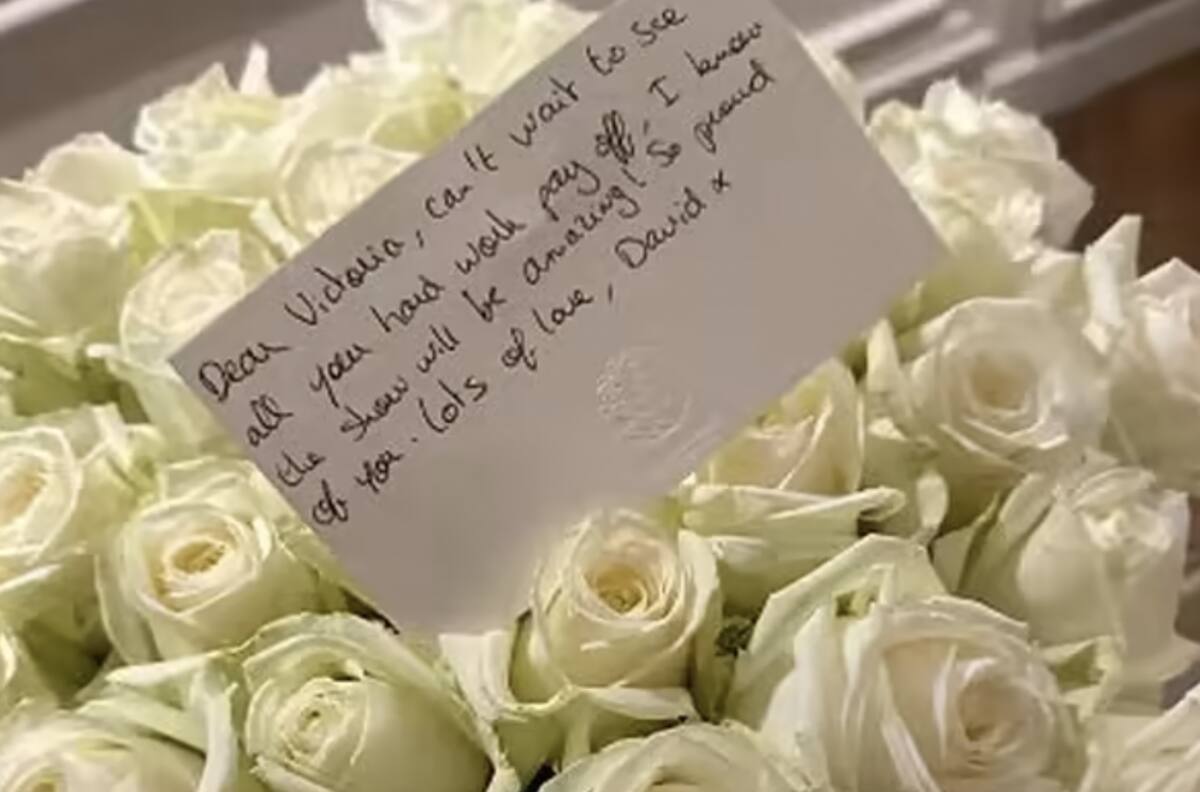 Dear Victoria, can't wait to see
all your hard work pay off, I know
the show will be amazing! So proud
of you. Lots of love, David x